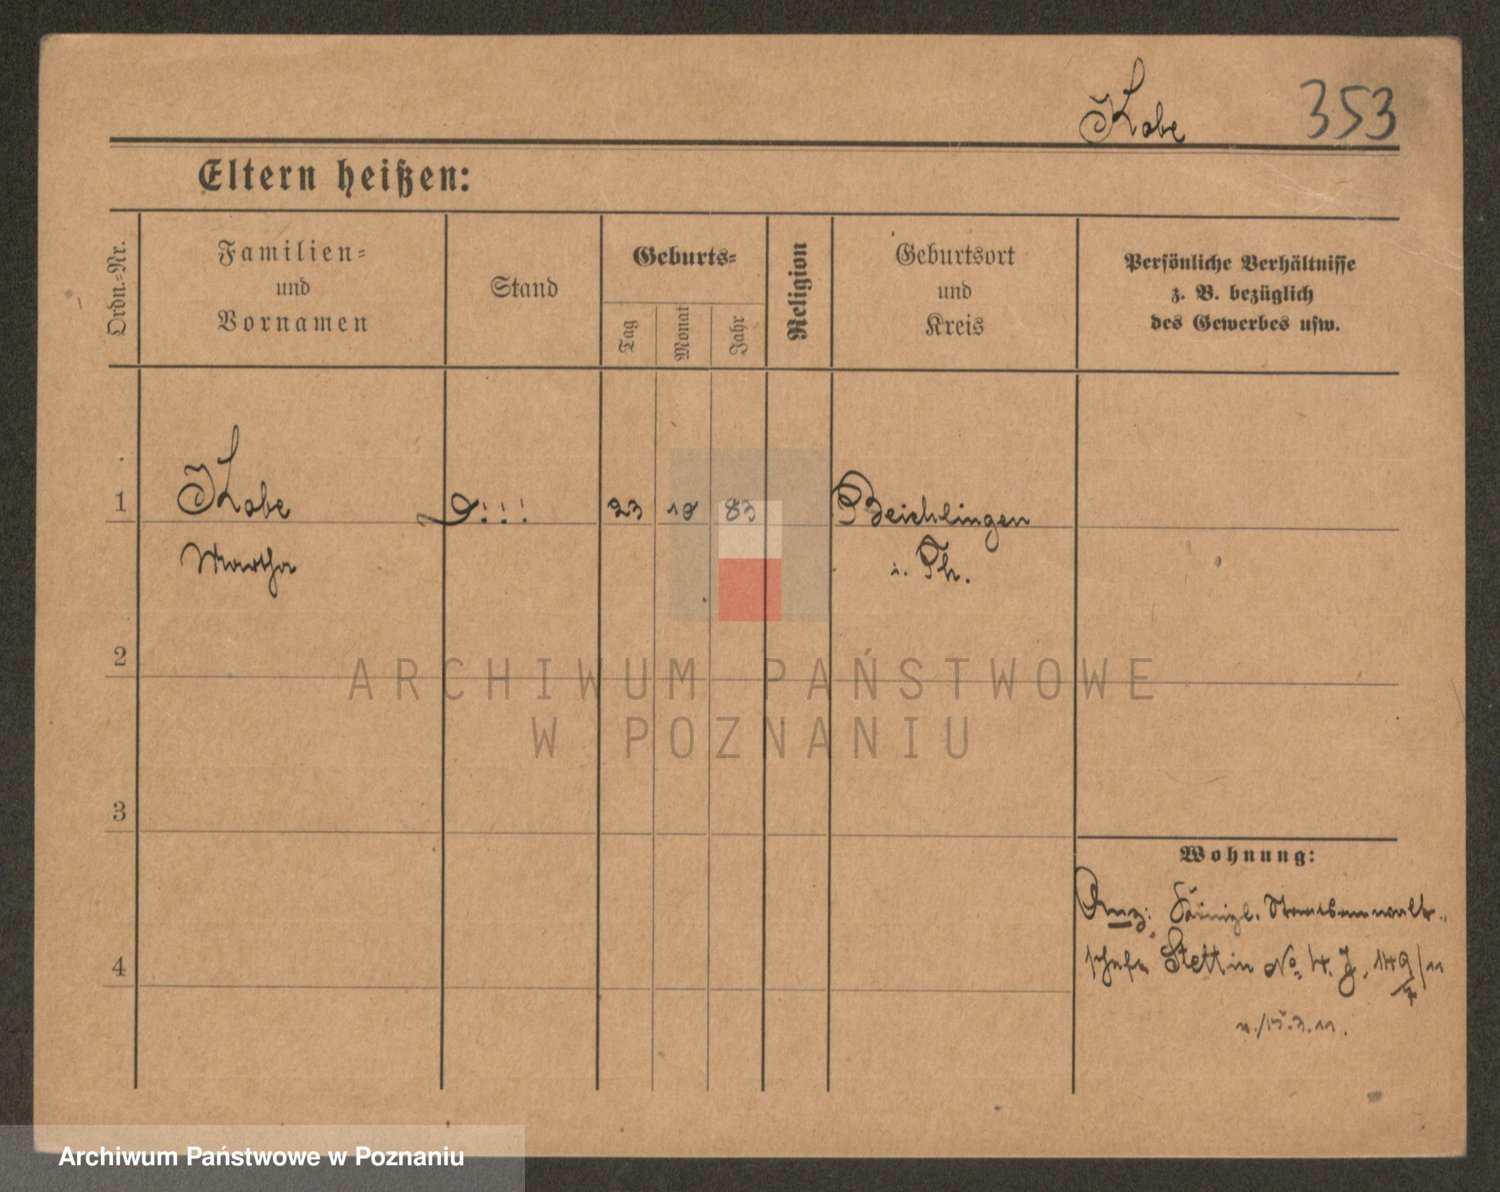 Kobe 353
Eltern heißen:
Ordn.-Nr.
Familien-
und
Vornamen
Stand
Geburts-
Tag
Monat
Jahr
Religion
Geburtsort
und
Kreis
Persönliche Verhältnisse
z. B. bezüglich
des Gewerbes usw.
1 Kobe 23 10 83 Beichlingen
Martha i. Th.
2
ARCHIWUM PAŃSTWOWE
W POZNANIU
3
Wohnung:
Königl. Staatsanwalt-
4
schaft Stettin No. 4. J. 149/11
Archiwum Państwowe w Poznaniu